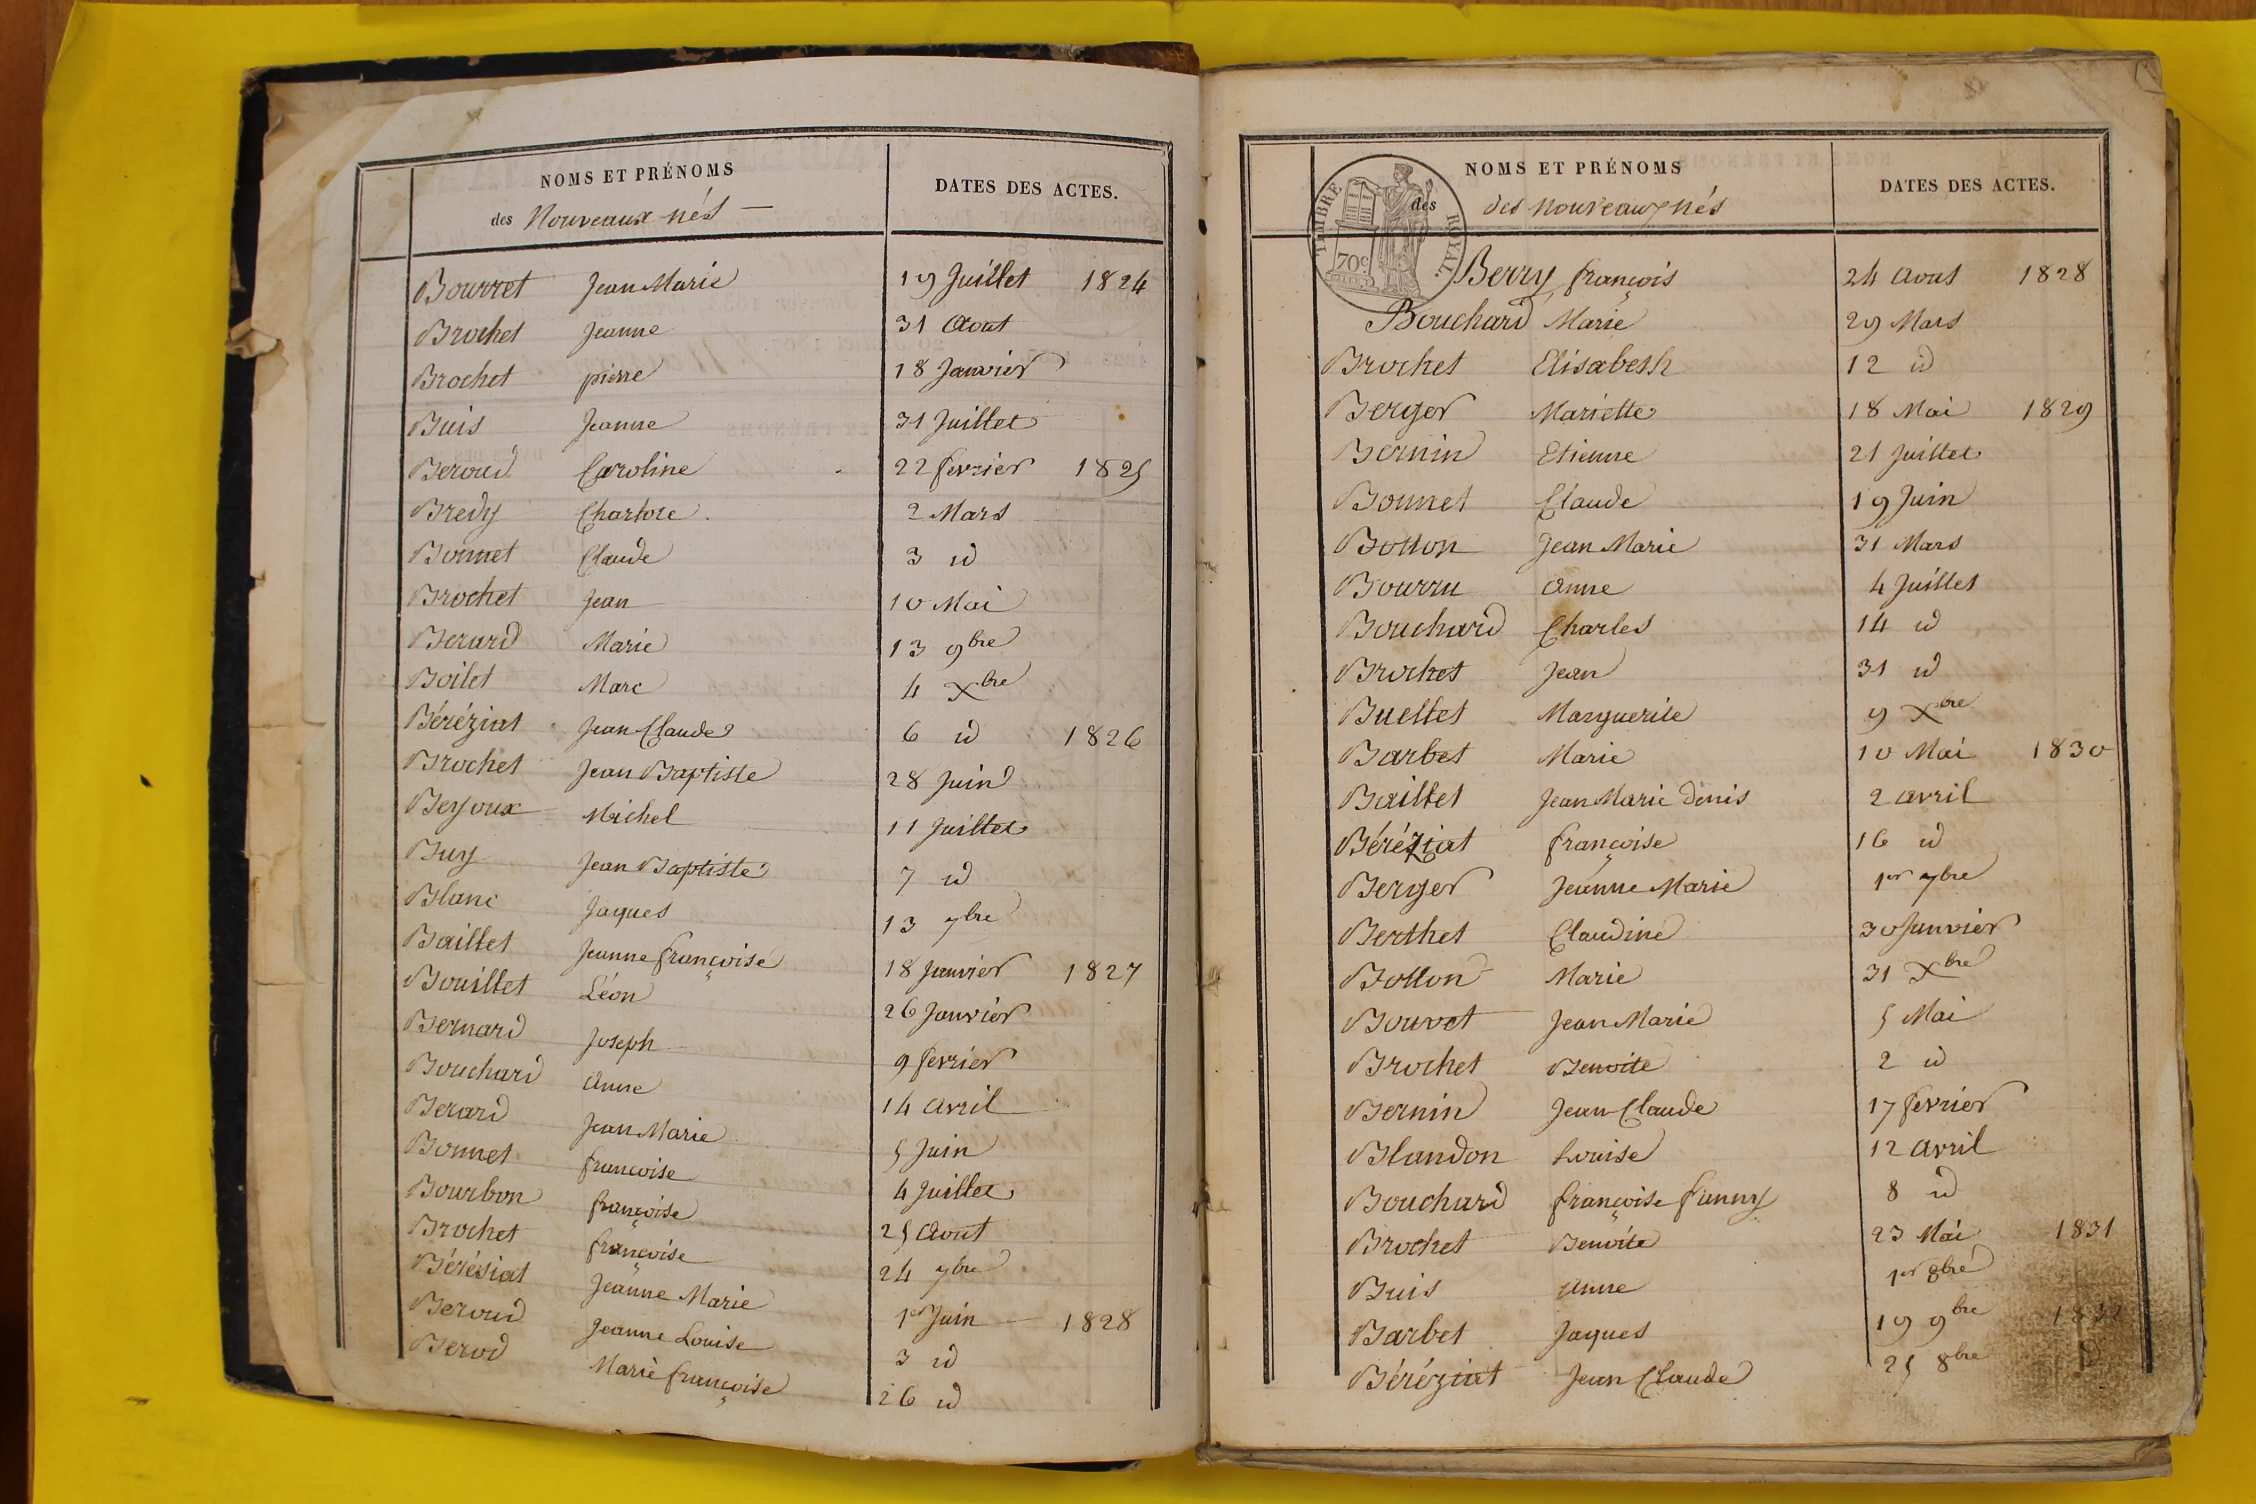 NOMS ET PRÉNOMS DATES DES ACTES.
des Nouveaux nés
Bourret Jean Marie 19 Juillet 1824
Brochet Jeanne 31 Aout
Brochet pierre 18 Janvier
Buis Jeanne 31 Juillet
Beroud Caroline 22 fevrier 1825
Bredy Charlote 2 Mars
Bonnet Claude 3 id
Brochet Jean 10 Mai
Berard Marie 13 9bre
Boilet Marc 4 Xbre
Béréziat Jean Claude 6 id 1826
Brochet Jean Baptiste 28 Juin
Beyoux Michel 11 Juillet
Buy Jean Baptiste 7 id
Blanc Jaques 13 7bre
Baillet Jeanne françoise 18 Janvier 1827
Bouillet Léon 26 Janvier
Bernard Joseph 9 fevrier
Bouchard Anne 14 Avril
Berard Jean Marie 5 Juin
Bonnet francoise 4 Juillet
Bourbon françoise 25 Aout
Brochet françoise 24 7bre
Bérésiat Jeanne Marie 1er Juin 1828
Beroud Jeanne Louise 3 id
Berod Marie françoise 26 id
NOMS ET PRÉNOMS DATES DES ACTES.
des des nouveaux nés
TIMBRE ROYAL.
70c
Berry françois 24 Aout 1828
Bouchard Marie 29 Mars
Brochet Elisabeth 12 id
Berger Mariette 18 Mai 1829
Bernin Etienne 21 Juillet
Bonnet Claude 19 Juin
Botton Jean Marie 31 Mars
Bourru Anne 4 Juillet
Bouchard Charles 14 id
Brochet Jean 31 id
Buellet Marguerite 9 Xbre
Barbet Marie 10 Mai 1830
Baillet Jean Marie denis 2 avril
Béréziat françoise 16 id
Berger Jeanne Marie 1er 7bre
Berthet Claudine 30 Janvier
Botton Marie 31 Xbre
Bouvet Jean Marie 5 Mai
Brochet Benoite 2 id
Bernin Jean Claude 17 fevrier
Blandon Louise 12 Avril
Bouchard françoise fanny 8 id
Brochet Benoite 23 Mai 1831
Buis Anne 1er 8bre
Barbet Jaques 19 9bre
Béréziat Jean Claude 25 8bre